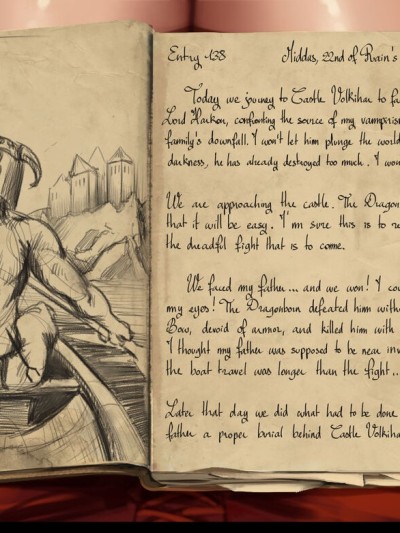 Entry 138 Middas, 22nd of Rain's
Today we journey to Castle Volkihar to fa
Lord Harkon, confronting the source of my vampirism
family's downfall. I won't let him plunge the world
darkness, he has already destroyed too much. I won
We are approaching the castle. The Dragon
that it will be easy. I'm sure this is to re
the dreadful fight that is to come.
We faced my father... and we won! I cou
my eyes! The Dragonborn defeated him witho
Bow, devoid of armor, and killed him with
I thought my father was supposed to be near inv
the boat travel was longer than the fight...
Later that day we did what had to be done
father a proper burial behind Castle Volkiha